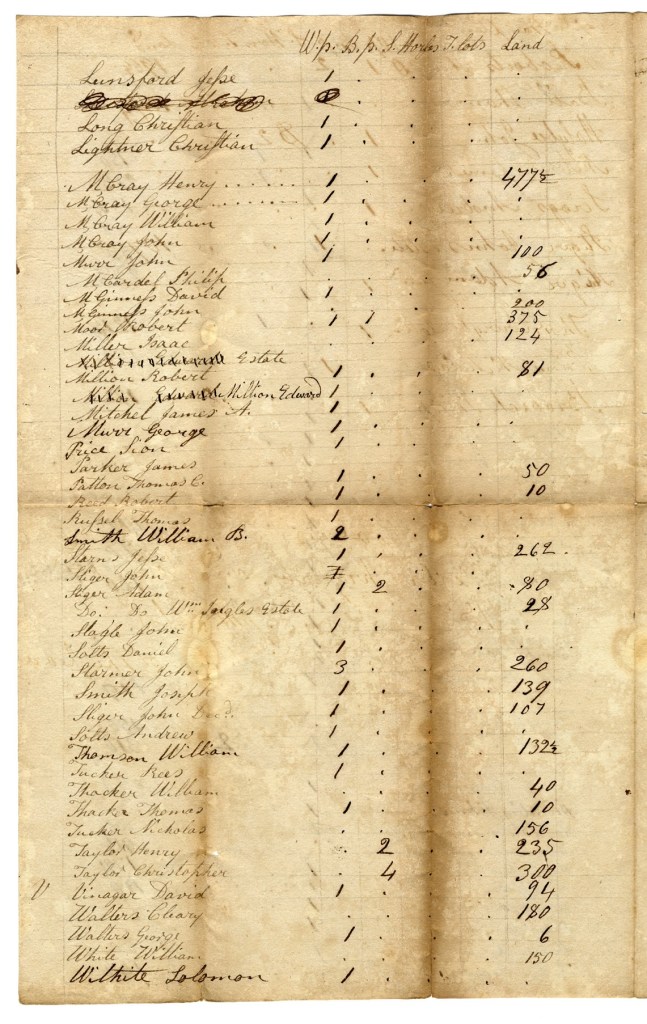 W.p. B.p. S. Horses T. lots Land
Lunsford Jesse 1
Long Christian 1
Lightner Christian 1
McCray Henry 1 477½
McCray George 1
McCray William 1
McCray John 1
Murr John 1 100
McCardel Philip 56
McGinness David 1
McGinness John 200
Moor Robert 1 1 375
Miller Isaac 124
Estate
Million Robert 1 81
Million Edward 1
Mitchel James A. 1
Murr George 1
Price Sion 1
Parker James
Patton Thomas C. 1 50
Reed Robert 1 10
Russel Thomas 1
Smith William B. 2
Starns Jesse 1 262
Sliger John
Sliger Adam 1 2 80
Do. Do Wm Ingles Estate 1 28
Slagle John 1
Sotts Daniel 1
Starmer John 3 260
Smith Joseph 1 139
Sliger John Decd. 1 107
Sotts Andrew 1
Thomson William 1 132½
Tucker Rees 1
Thacker William 40
Thacker Thomas 1 10
Tucker Nicholas 156
Taylor Henry 2 235
Taylor Christopher 4 300
V Vinagar David 1 94
Walters Cleary 180
Walters George 1 6
White William 150
Wilhite Solomon 1